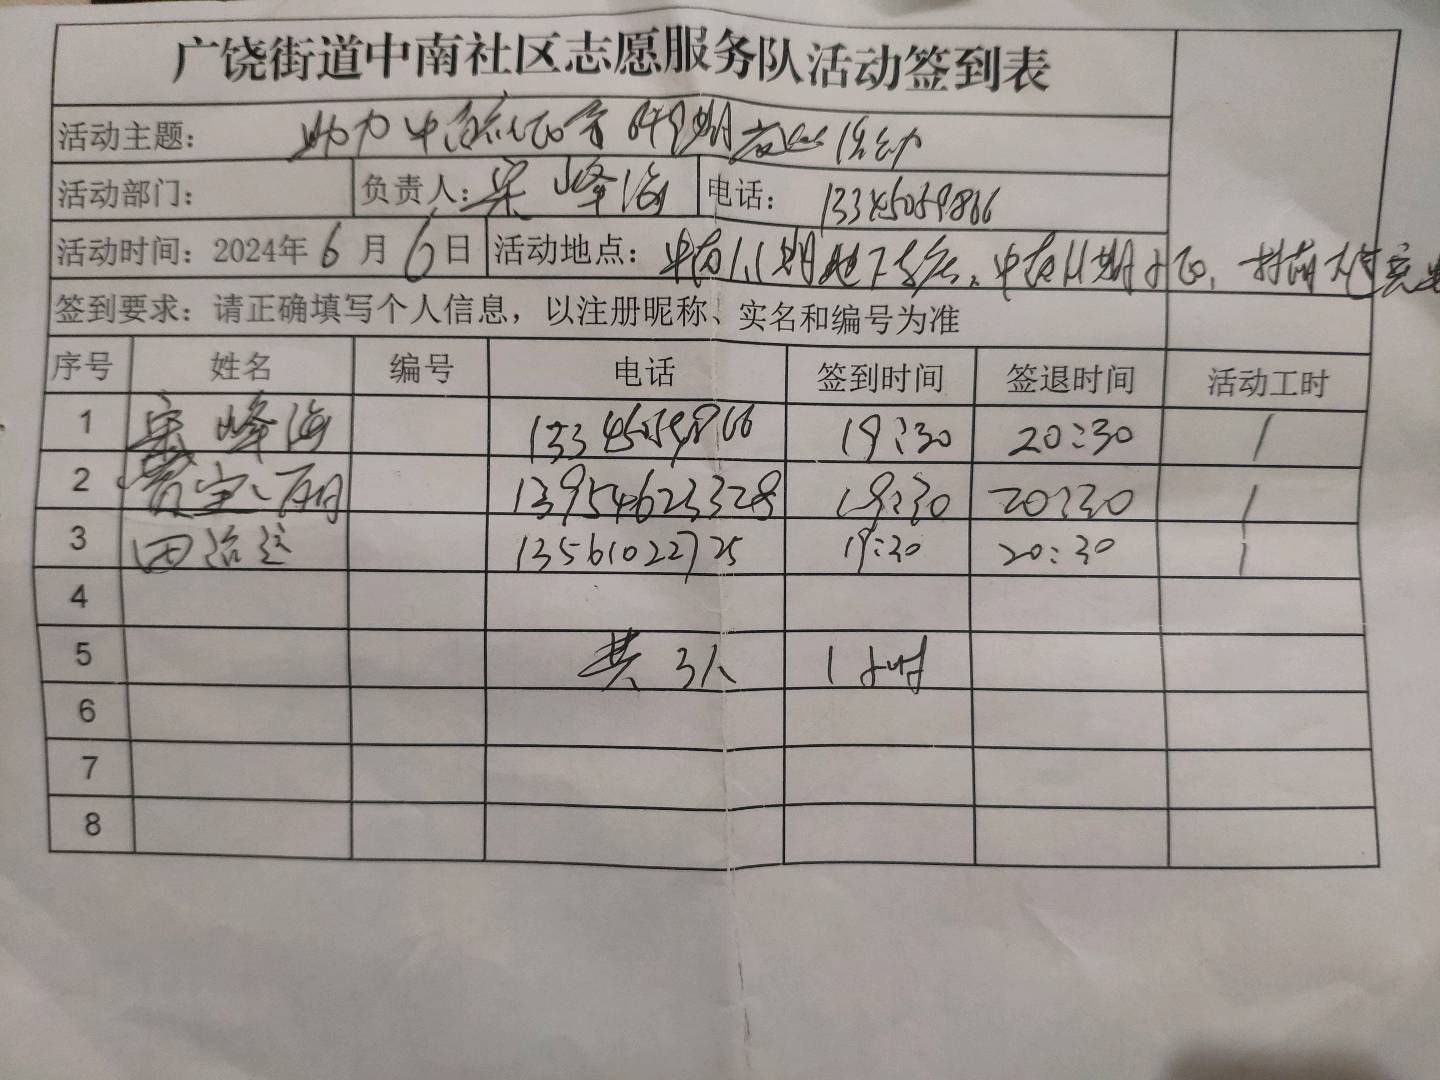 广饶街道中南社区志愿服务队活动签到表
活动主题： 助力中南
活动部门： 负责人：宋峰海 电话： 13345059866
活动时间：2024年6月6日 活动地点： 中南 期地下
签到要求：请正确填写个人信息，以注册昵称、实名和编号为准
序号 姓名 编号 电话 签到时间 签退时间 活动工时
1 宋峰海 13345059866 19:30 20:30 1
2 贾宝丽 13954623328 19:30 20:30 1
3 田治 13561022725 19:30 20:30 1
4
5 共3人 1小时
6
7
8